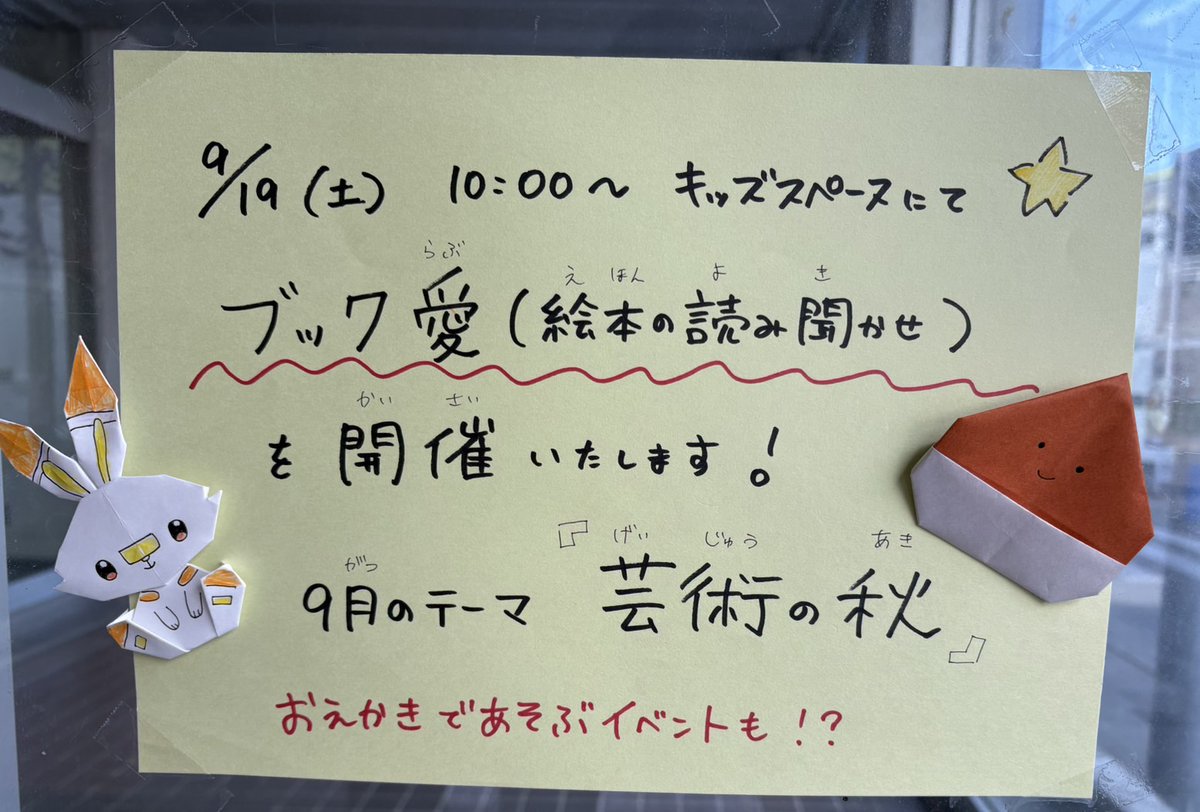 9/19(土) 10:00〜 キッズスペースにて
らぶ えほん よ き
ブック愛(絵本の読み聞かせ)
かい さい
を開催いたします!
がつ げい じゅう あき
9月のテーマ 『芸術の秋』
おえかきであそぶイベントも!?